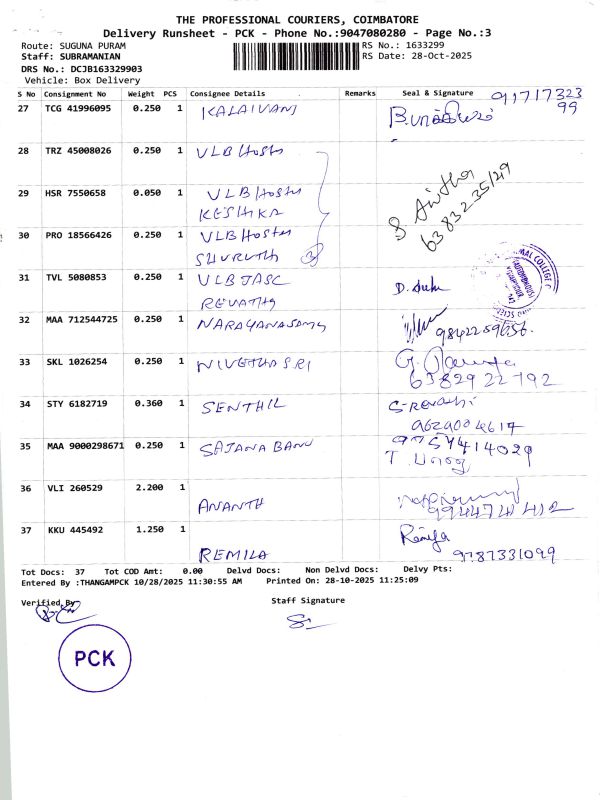 THE PROFESSIONAL COURIERS, COIMBATORE
Delivery Runsheet - PCK - Phone No.:9047080280 - Page No.:3
Route: SUGUNA PURAM RS No.: 1633299
Staff: SUBRAMANIAN RS Date: 28-Oct-2025
DRS No.: DCJB163329903
Vehicle: Box Delivery
S No Consignment No Weight PCS Consignee Details Remarks Seal & Signature
27 TCG 41996095 0.250 1 KALAIVANI 917173 23
99
28 TRZ 45008026 0.250 1 VLB Hosts
29 HSR 7550658 0.050 1 VLB Hosts
KESHIKA
6383235129
30 PRO 18566426 0.250 1 VLB Hosts
SHURUTH 3
31 TVL 5080853 0.250 1 VLB JASC
REVATHY
32 MAA 712544725 0.250 1 NARAYANASAMY
9842259656.
33 SKL 1026254 0.250 1 NIVETHA SRI
6382922792
34 STY 6182719 0.360 1 SENTHIL S-Revathi
9629004617
35 MAA 9000298671 0.250 1 SAJANA BANU 9757414029
36 VLI 260529 2.200 1
ANANTH
37 KKU 445492 1.250 1
REMILA 9787331099
Tot Docs: 37 Tot COD Amt: 0.00 Delvd Docs: Non Delvd Docs: Delvy Pts:
Entered By :THANGAMPCK 10/28/2025 11:30:55 AM Printed On: 28-10-2025 11:25:09
Verified By Staff Signature
PCK